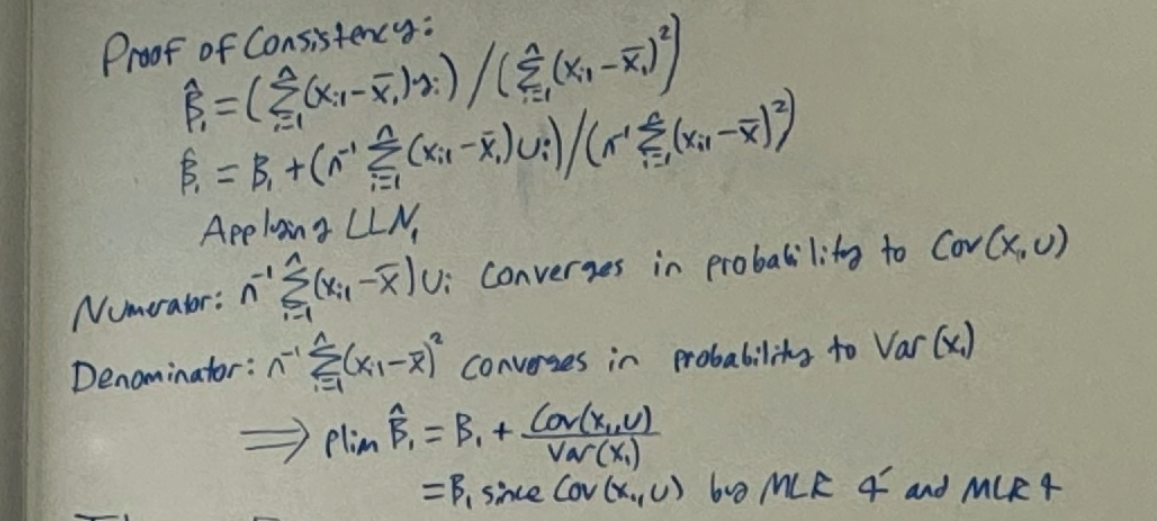 Proof of Consistency:
β̂₁ = (Σⁿᵢ₌₁(xᵢ₁ - x̄₁)yᵢ) / (Σⁿᵢ₌₁(xᵢ₁ - x̄₁)²)
β̂₁ = β₁ + (n⁻¹ Σⁿᵢ₌₁(xᵢ₁ - x̄₁)uᵢ) / (n⁻¹ Σⁿᵢ₌₁(xᵢ₁ - x̄)²)
Applying LLN,
Numerator: n⁻¹ Σⁿᵢ₌₁(xᵢ₁ - x̄)uᵢ converges in probability to Cov(x₁,u)
Denominator: n⁻¹ Σⁿᵢ₌₁(xᵢ₁ - x̄)² converges in probability to Var(x₁)
⟹ plim β̂₁ = β₁ + Cov(x₁,u)/Var(x₁)
= β₁ since Cov(x₁,u) by MLR 4' and MLR 4